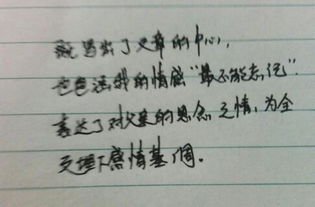 既写出了文章的中心,
也包涵我的情感“最不能忘记”.
表达了对父亲的思念之情,为全
文埋下感情基调.